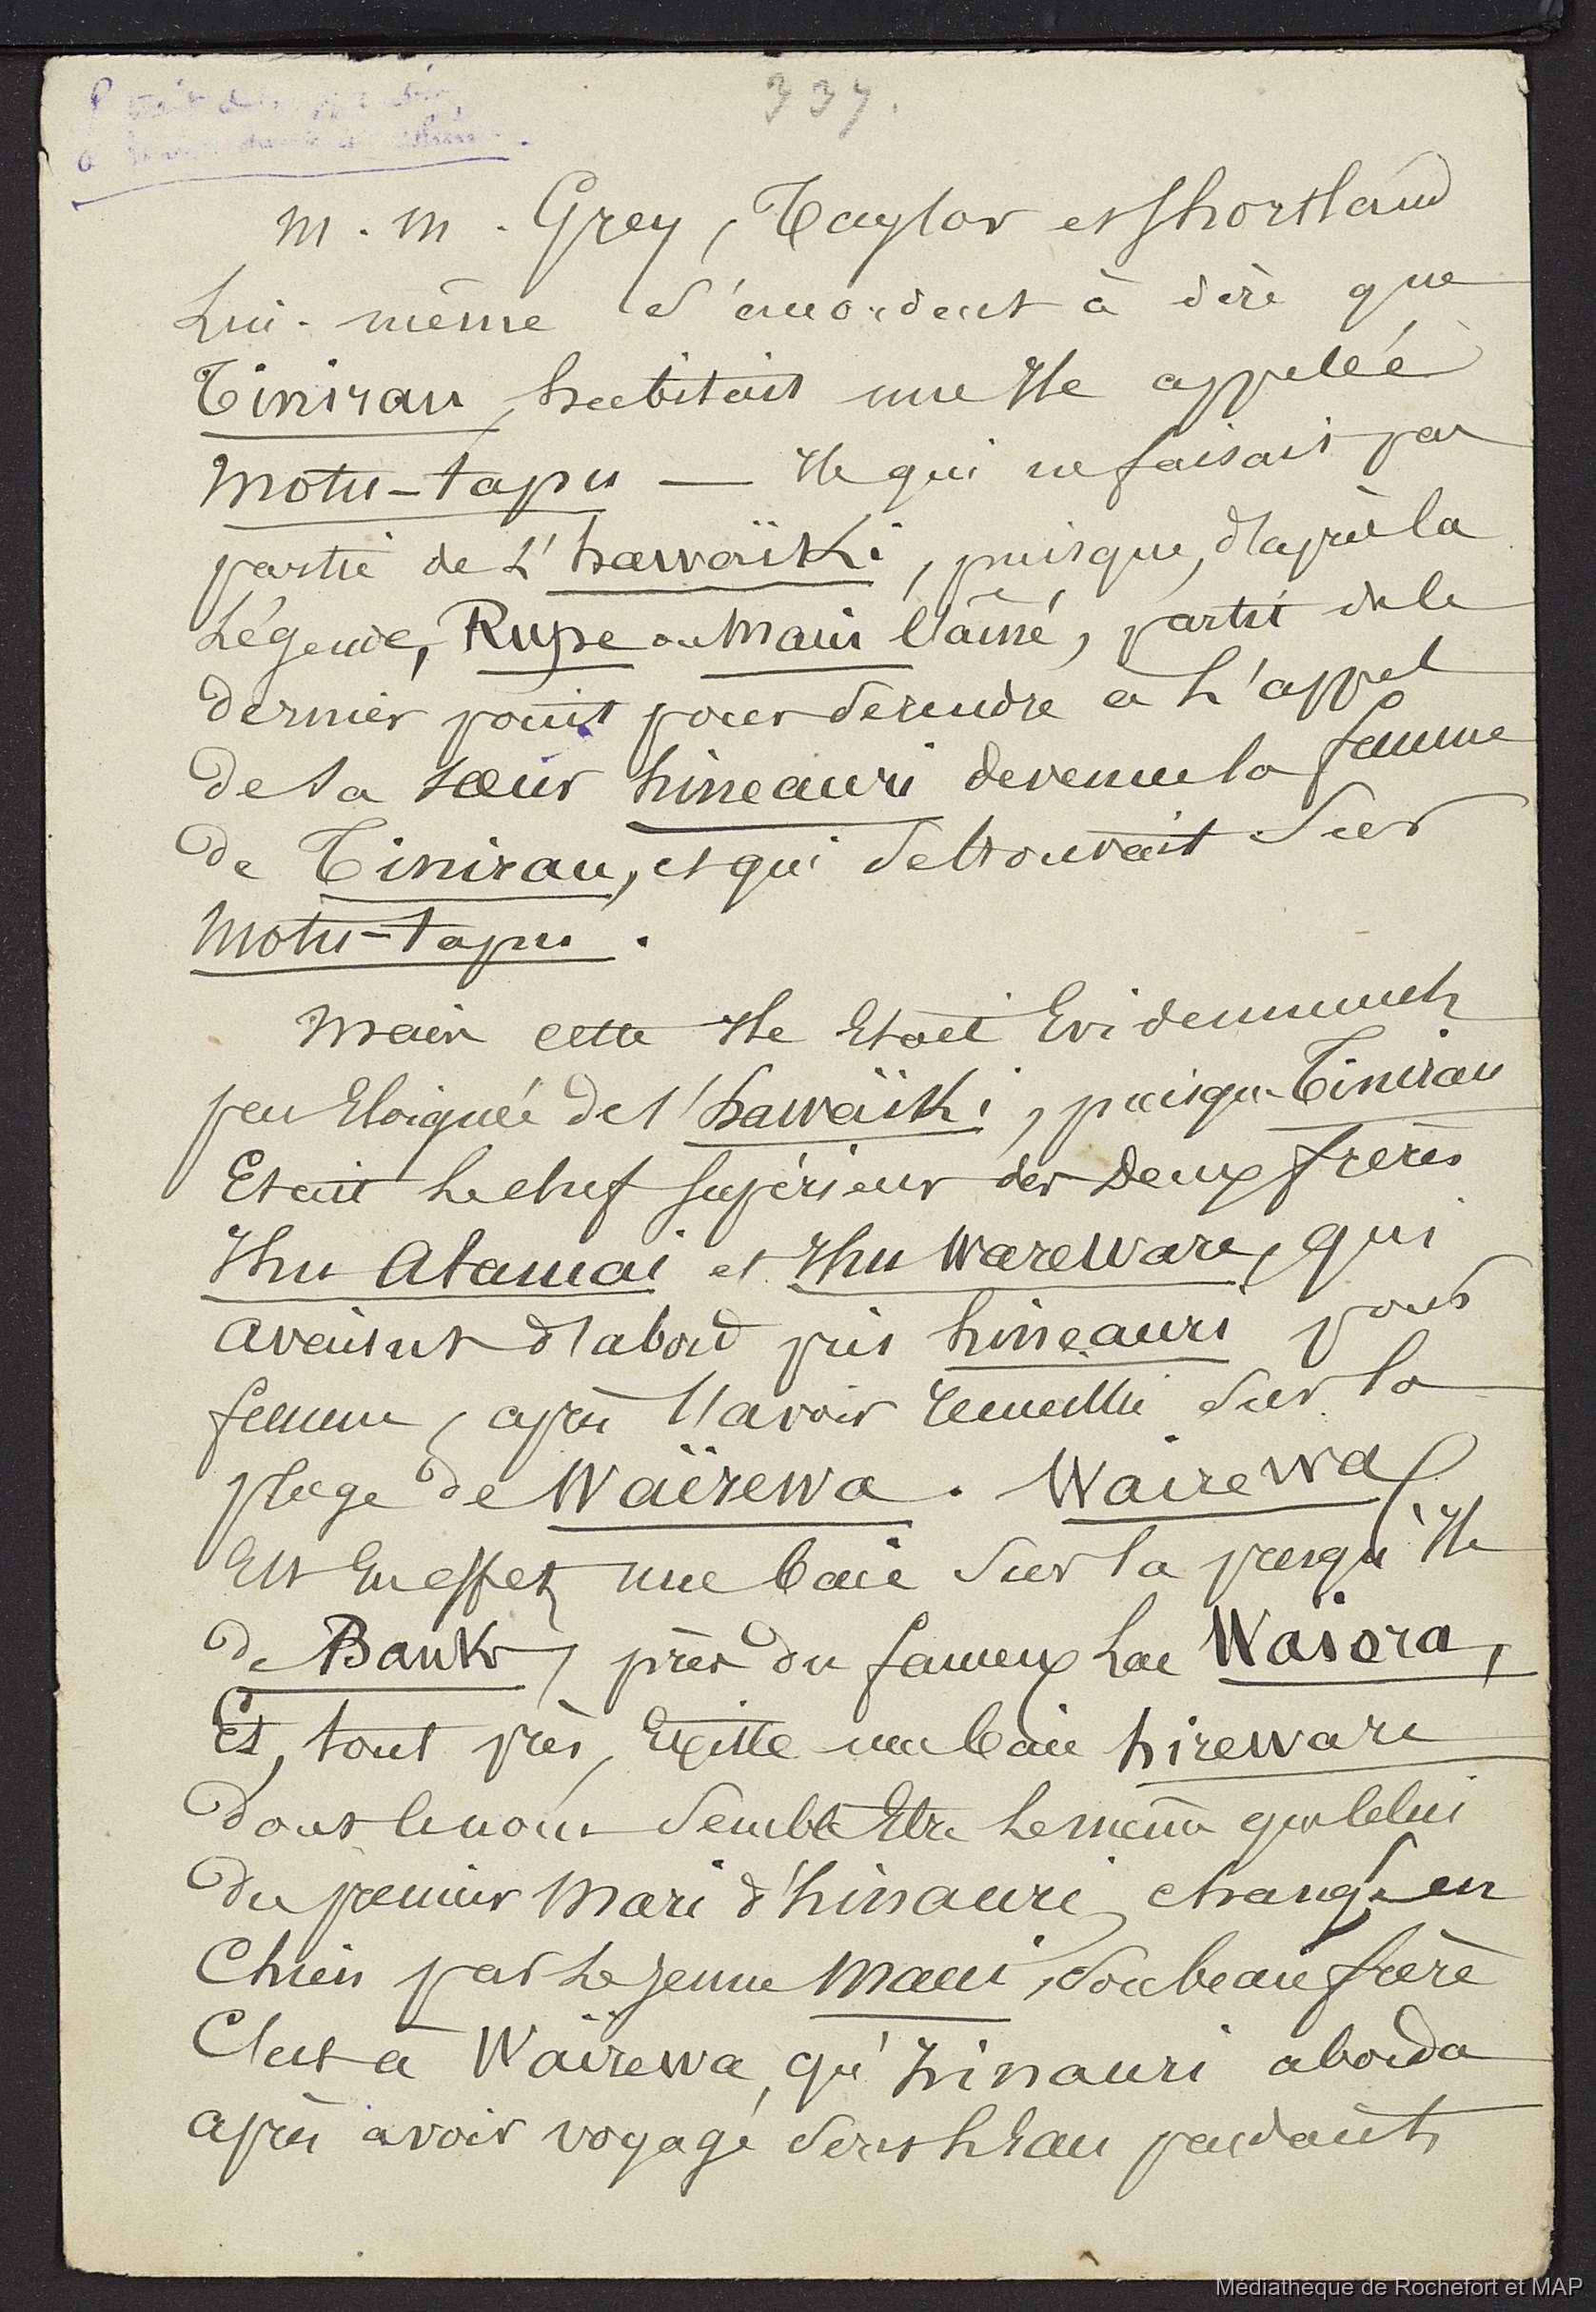 337.
M. M. Grey, Taylor et Shortland
Lui-même s'accordent à dire que
Tinirau habitait une Ile appelée
Motu-tapu — Ile qui ne faisait pas
partie de L'hawaïki, puisque, d'après la
Légende, Rupe ou Maui l'aîné, partit de ce
dernier point pour se rendre à L'appel
de sa sœur hineauri devenue la femme
de Tinirau, et qui se trouvait sur
Motu-tapu.
Mais cette Ile Etait Evidemment
peu Eloignée de l'hawaïki, puisque Tinirau
Etait Le chef supérieur des Deux frères
Ihu Atamai et Ihu Wareware, qui
avaient d'abord pris hineauri pour
femme, après l'avoir recueillie sur la
plage de Waïrewa. Wairewa
Est En effet une baie sur la presqu'Ile
de Banks, près du fameux Lac Waïora,
Et, tout près, Existe une baie hireware
dont le nom semble Etre Le même que celui
du premier Mari d'hinauri, changé en
Chien par Le jeune Maui, son beau frère
C'est à Waïrewa, qu'hinauri aborda
après avoir voyagé sous L'Eau pendant
Médiathèque de Rochefort et MAP